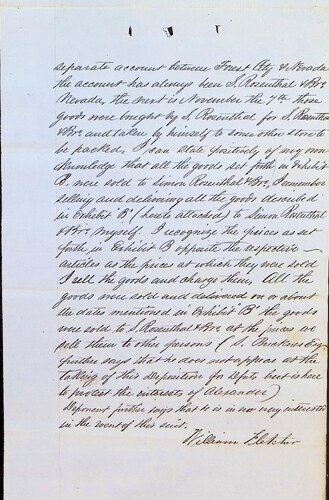 separate account between Forest City & Nevada
the account has always been S. Rosenthal & Bro.
Nevada, the next is November the 7th those
goods were bought by S. Rosenthal for S. Rosenthal
& Bro. and taken by himself to some other store to
be packed. I can state positively of my own
knowledge that all the goods set forth in Exhibit
B, were sold to Simon Rosenthal & Bro, I remember
selling and delivering all the goods described
in Exhibit B (hereto attached) to Simon Rosenthal
& Bro myself. I recognize the prices as set
forth in Exhibit B opposite the respective
articles as the prices at which they were sold
I sell the goods and charge them, All the
goods were sold and delivered on or about
the dates mentioned in Exhibit B the goods
were sold to S. Rosenthal & Bro at the prices we
sell them to other persons (S. Esq
further says that he does not appear at the
taking of this Deposition for Defts but is here
to protect the interests of Alexander)
Deponent further says that he is in no way interested
in the event of this suit.
William Fletcher